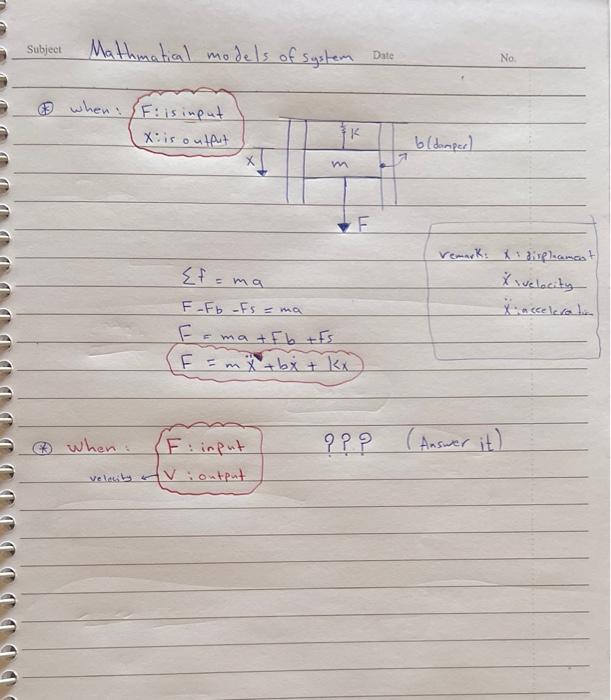 Subject Mathmatial models of system Date No.
* when: F: is input
X: is output
K
b(damper)
X
m
F
remark: x: displament
ẋ: velocity
ẍ: acceleration
Σf = ma
F - Fb - Fs = ma
F = ma + Fb + Fs
F = mẍ + bẋ + Kx
* when: F: input ??? (Answer it)
velocity ← V: output